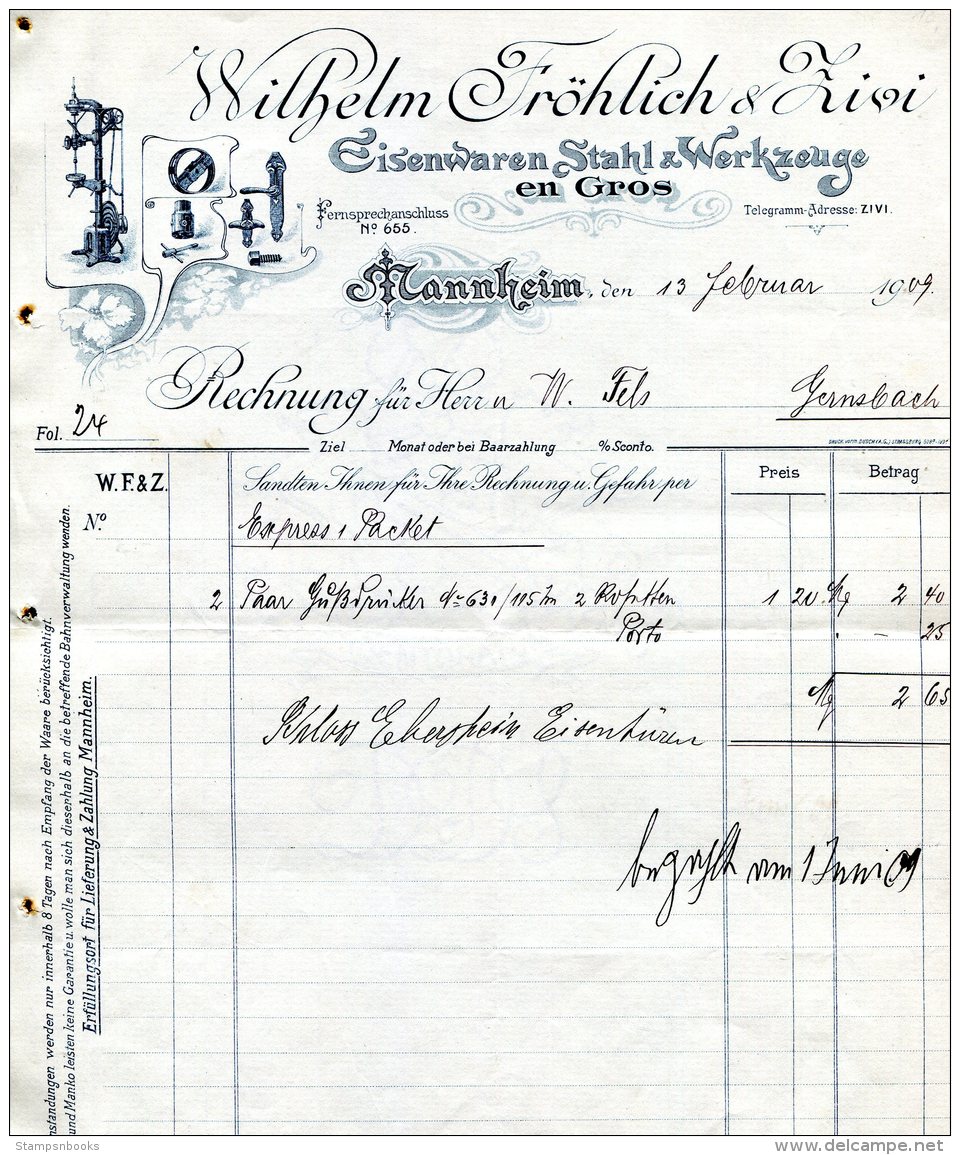 Wilhelm Fröhlich & Zivi
Eisenwaren Stahl & Werkzeuge
en Gros
Fernsprechanschluss
No 655.
Telegramm-Adresse: ZIVI.
Mannheim, den 13 Februar 1909.
Rechnung für Herrn W. Fels
Gernsbach
Fol. 24
Ziel Monat oder bei Baarzahlung % Sconto.
W. F. & Z.
Sandten Ihnen für Ihre Rechnung u. Gefahr per
Preis
Betrag
No.
Express 1 Packet
2 Paar Gußdrücker No 630/115 2 1 20 Mg 2 40
Porto - 25
Mg 2 65
Schloss Eberstein Eisentüren
bezahlt am 1 Juni 09
nstandungen werden nur innerhalb 8 Tagen nach Empfang der Waare berücksichtigt.
und Manko leisten keine Garantie u. wolle man sich dieserhalb an die betreffende Bahnverwaltung wenden.
Erfüllungsort für Lieferung & Zahlung Mannheim.
Stampsnbooks
delcampe.net